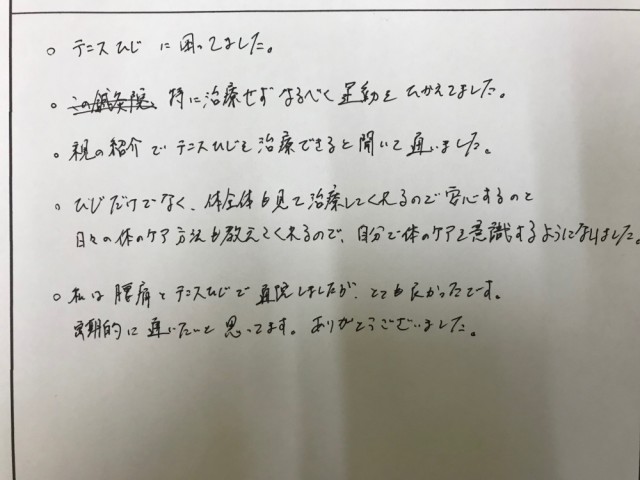 ○ テニスひじ に 困ってました。
○ この鍼灸院 特に治療せず なるべく 運動を ひかえてました。
○ 親の紹介で テニスひじも 治療できると聞いて 通いました。
○ ひじだけでなく、体全体も見て治療してくれるので安心するのと
日々の体のケア方法も教えてくれるので、自分で体のケアを意識するようになりました。
○ 私は 腰痛と テニスひじで 通院しましたが、とても良かったです。
定期的に 通いたいと 思ってます。ありがとうございました。